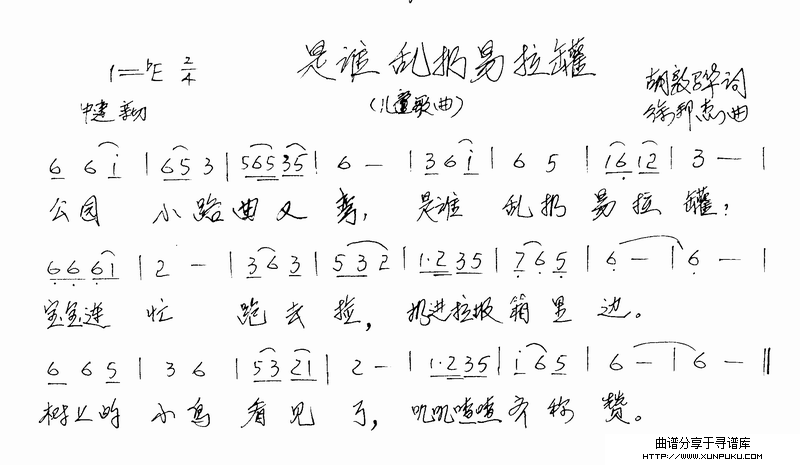 是谁乱扔易拉罐
1=♭E 2/4
(儿童歌曲)
胡敦骅词
徐邦杰曲
6 6 i | 6 5 3 | 5 6 5 3 5 | 6 – | 3 6 i | 6 5 | 1 6 1 2 | 3 – |
公园 小路曲又弯，是谁 乱扔易拉罐；
6 6 6 1 | 2 – | 3 6 3 | 5 3 2 | 1·2 3 5 | 7 6 5 | 6 – | 6 – |
宝宝连忙 跑去捡，扔进垃圾箱里边。
6 6 5 | 3 6 | 5 3 2 1 | 2 – | 1·2 3 5 | i 6 5 | 6 – | 6 – ‖
树上的小鸟看见了，叽叽喳喳齐称赞。
曲谱分享于寻谱库
HTTP://WWW.XUNPUKU.COM